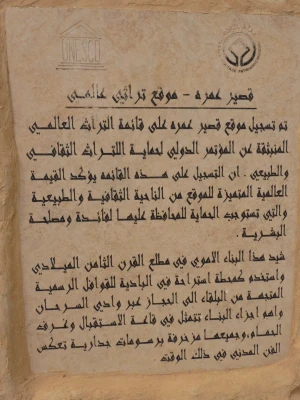 UNESCO
قصير عمره - موقع تراثي عالمي
تم تسجيل موقع قصير عمره على قائمة التراث العالمي
المنبثقة عن المؤتمر الدولي لحماية التراث الثقافي
والطبيعي . ان التسجيل على هذه القائمه يؤكد القيمة
العالمية المتميزة للموقع من الناحية الثقافية والطبيعية
والتي تستوجب الحماية للمحافظة عليها لفائدة ومصلحة
البشرية .
شيد هذا البناء الاموي في مطلع القرن الثامن الميلادي
واستخدم كمحطة استراحة في البادية للقوافل الرسمية
المتجهة من البلقاء الى الحجاز عبر وادي السرحان
واهم اجزاء البناء تتمثل في قاعة الاستقبال وغرف
الحمام، وجميعها مزخرفة برسومات جدارية تعكس
الفن المدني في ذلك الوقت .